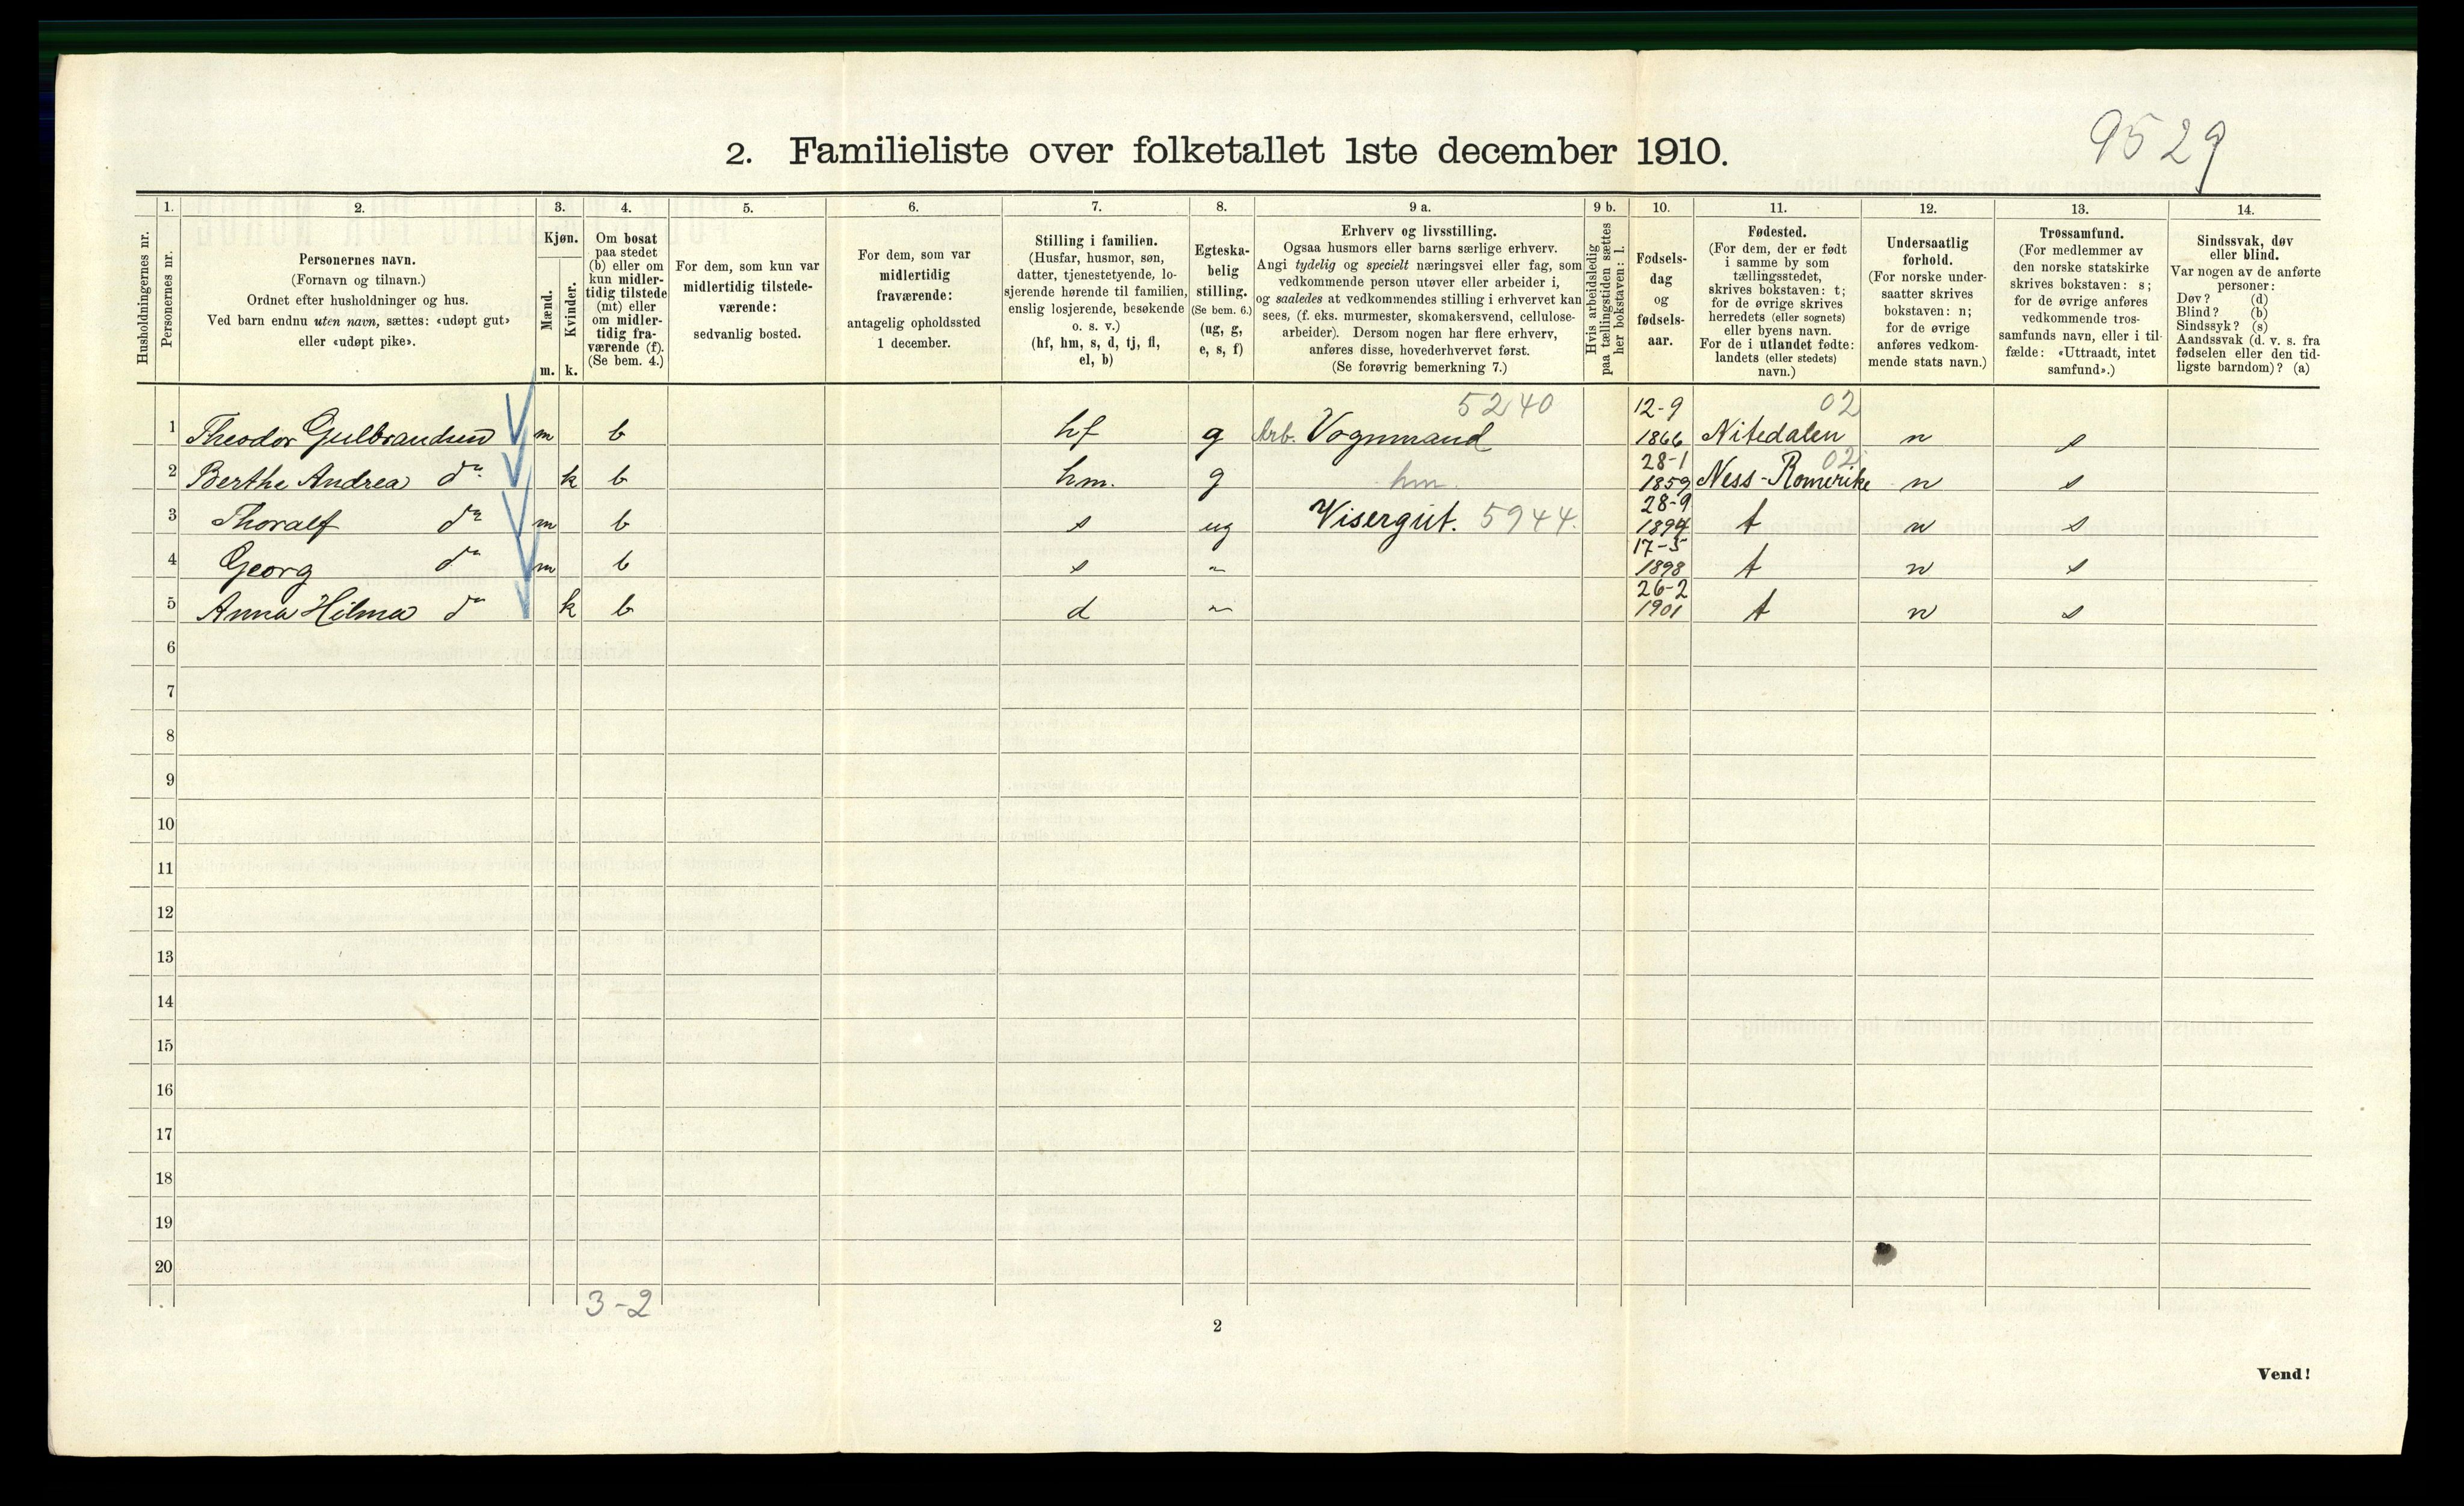 9529
2. Familieliste over folketallet 1ste december 1910.
Husholdningernes nr.
1.
Personernes nr.
2.
Personernes navn.
(Fornavn og tilnavn.)
Ordnet efter husholdninger og hus.
Ved barn endnu uten navn, sættes: «udøpt gut»
eller «udøpt pike».
3.
Kjøn.
Mænd.
Kvinder.
m. k.
4.
Om bosat
paa stedet
(b) eller om
kun midler-
tidig tilstede
(mt) eller
om midler-
tidig fra-
værende (f).
(Se bem. 4.)
5.
For dem, som kun var
midlertidig tilstede-
værende:
sedvanlig bosted.
6.
For dem, som var
midlertidig
fraværende:
antagelig opholdssted
1 december.
7.
Stilling i familien.
(Husfar, husmor, søn,
datter, tjenestetyende, lo-
sjerende hørende til familien,
enslig losjerende, besøkende
o. s. v.)
(hf, hm, s, d, tj, fl,
el, b)
8.
Egteska-
belig
stilling.
(Se bem. 6.)
(ug, g,
e, s, f)
9 a.
Erhverv og livsstilling.
Ogsaa husmors eller barns særlige erhverv.
Angi tydelig og specielt næringsvei eller fag, som
vedkommende person utøver eller arbeider i,
og saaledes at vedkommendes stilling i erhvervet kan
sees, (f. eks. murmester, skomakersvend, cellulose-
arbeider). Dersom nogen har flere erhverv,
anføres disse, hovederhvervet først.
(Se forøvrig bemerkning 7.)
9 b.
Hvis arbeidsledig
paa tællingstiden sættes
her bokstaven: l.
10.
Fødsels-
dag
og
fødsels-
aar.
11.
Fødested.
(For dem, der er født
i samme by som
tællingsstedet,
skrives bokstaven: t;
for de øvrige skrives
herredets (eller sognets)
eller byens navn.
For de i utlandet fødte:
landets (eller stedets)
navn.)
12.
Undersaatlig
forhold.
(For norske under-
saatter skrives
bokstaven: n;
for de øvrige
anføres vedkom-
mende stats navn.)
13.
Trossamfund.
(For medlemmer av
den norske statskirke
skrives bokstaven: s;
for de øvrige anføres
vedkommende tros-
samfunds navn, eller i til-
fælde: «Uttraadt, intet
samfund».)
14.
Sindssvak, døv
eller blind.
Var nogen av de anførte
personer:
Døv? (d)
Blind? (b)
Sindssyk? (s)
Aandssvak (d. v. s. fra
fødselen eller den tid-
ligste barndom)? (a)
5240 12-9 02
1 Theodor Gulbrandsen m b hf g Arb. Vognmand 1866 Nitedalen n s
28-1 02
2 Berthe Andrea do k b hm. g hm. 1859 Ness-Romerike n s
28-9
3 Thoralf do m b s ug Visergut. 5944. 1894 t n s
17-5
4 Georg do m b s " 1898 t n s
26-2
5 Anna Hilma do k b d " 1901 t n s
6
7
8
9
10
11
12
13
14
15
16
17
18
19
20
3-2
2
Vend!